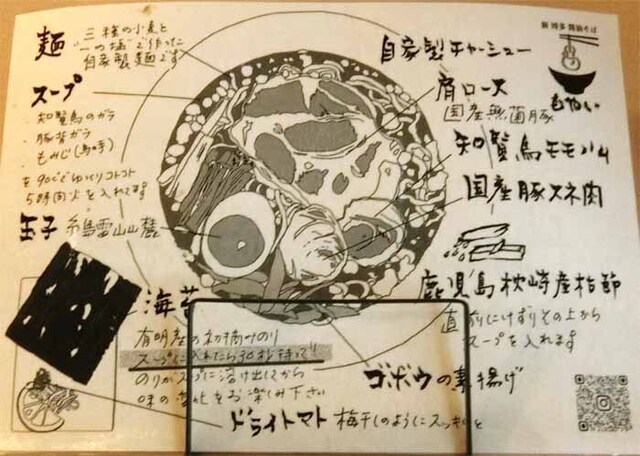 新 博多 醤油そば
もやい
麺 三種の小麦と
一つの塩で作った
自家製麺です
スープ
・知覧鳥のガラ
・豚背ガラ
・もみじ(鳥の手)
を90℃でゆっくりコトコト
5時間火を入れてます
玉子 糸島雷山山麓
自家製チャーシュー
肩ロース
国産無菌豚
知覧鳥モモハム
国産豚スネ肉
鹿児島枕崎産枯節
直前にけずりその上から
スープを入れます
海苔
有明産の初摘みのり
スープに入れたら30秒待って!!
のりがスープに溶け出してから
味の変化をお楽しみ下さい
ゴボウの素揚げ
ドライトマト 梅干しのようにスッキリと